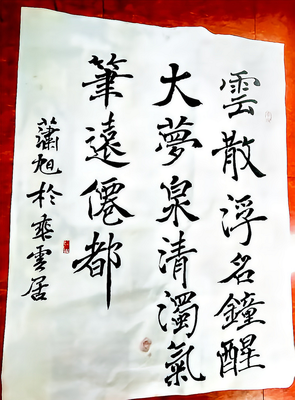 雲散浮名鐘醒
大夢泉清濁氣
筆遠僊都
蕭旭於乘雲居